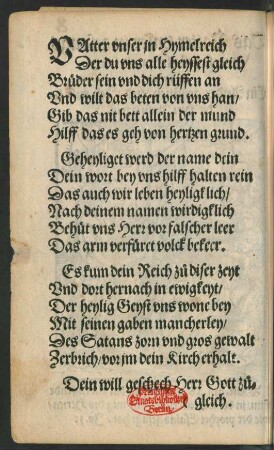 VAtter vnser in Hymelreich
Der du vns alle heyssest gleich
Brüder sein vnd dich rüffen an
Vnd wilt das beten von vns han/
Gib das nit bett allein der mund
Hilff das es geh von hertzen grund.
Geheyliget werd der name dein
Dein wort bey vns hilff halten rein
Das auch wir leben heyligklich/
Nach deinem namen wirdigklich
Behüt vns Herr vor falscher leer
Das arm verfüret volck bekeer.
Es kum dein Reich zů diser zeyt
Vnd dort hernach in ewigkeyt/
Der heylig Geyst vns wone bey
Mit seinen gaben mancherley/
Des Satans zorn vnd gros gewalt
Zerbrich/ vor jm dein Kirch erhalt.
Dein will geschech Herr Gott zů-
gleich.
Staatsbibliothek
Berlin